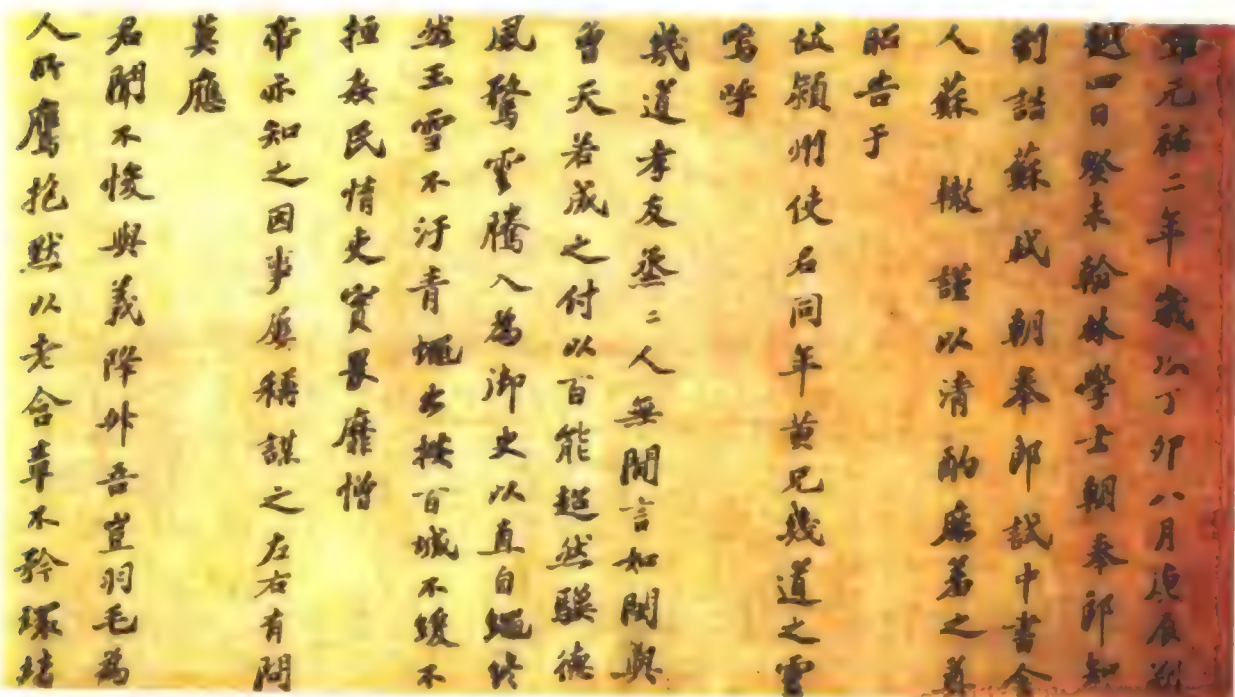 維元祐二年歲次丁卯八月庚辰朔
越四日癸未翰林學士朝奉郎知
制誥蘇軾朝奉郎試中書舍
人蘇轍謹以清酌庶羞之奠
昭告于
故潁州使君同年黃兄幾道之靈
嗚呼
幾道孝友烝二人無間言如閔與
曾天若成之付以百能超然驥德
風騖雲騰入為御史以直自繩身
然玉雪不汙青蠅出按百城不緩不
拒姦民惰吏實畏靡憎
帝亦知之因事屢稱謀之左右有問
莫應
君聞不悛與義降升吾豈羽毛為
人所鷹抱默以老含章不矜環堵